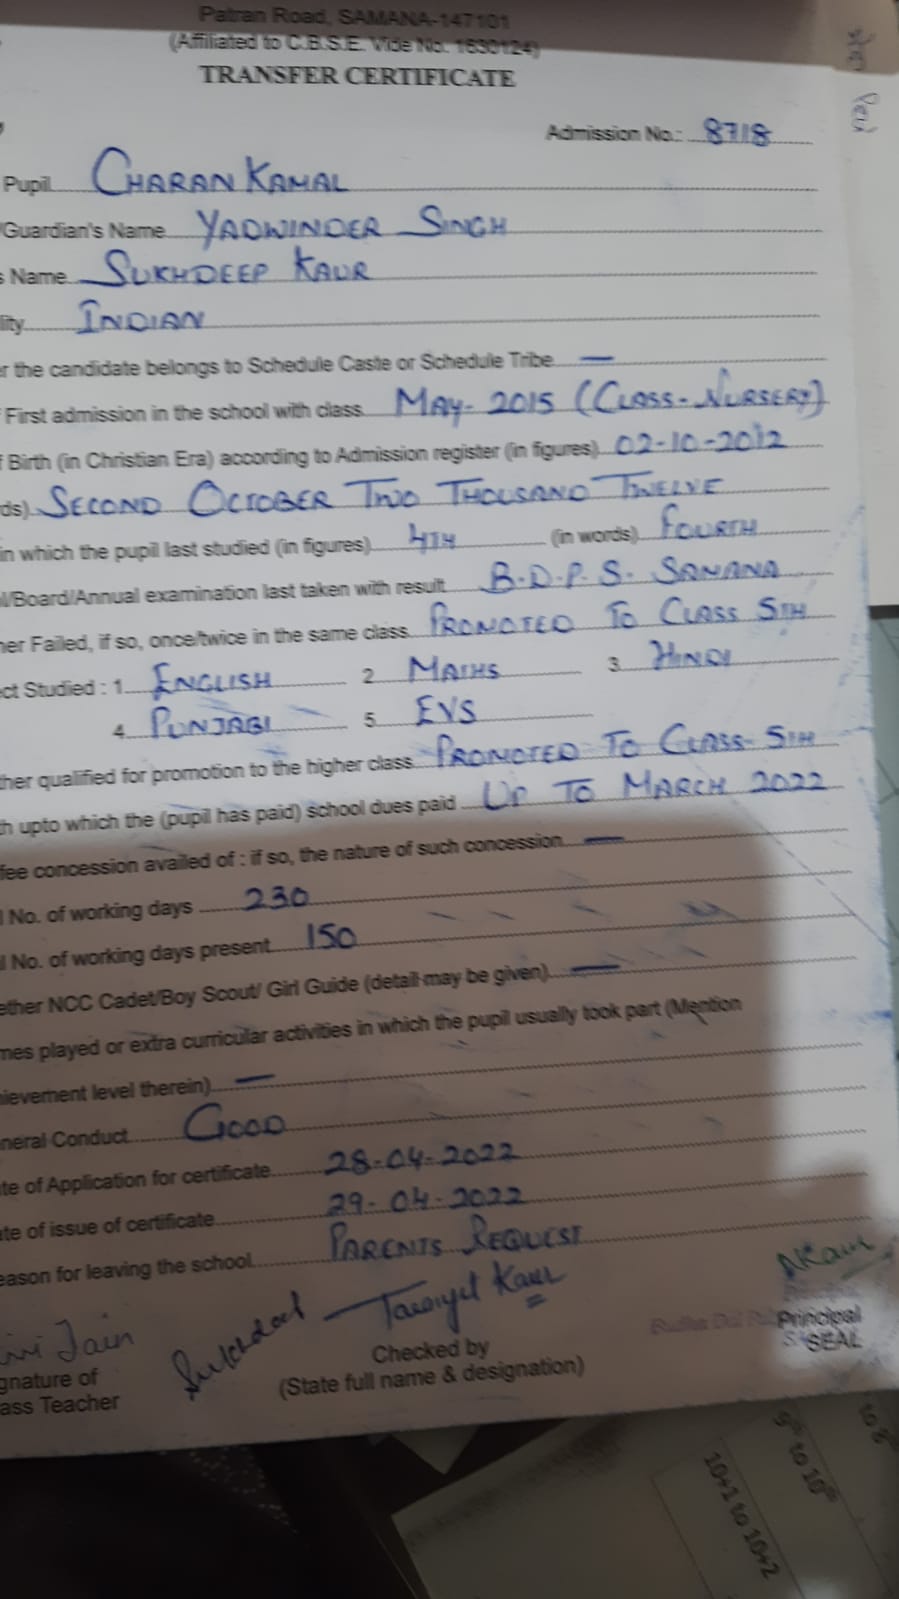 Patran Road, SAMANA-147101
(Affiliated to C.B.S.E. Vide No. 1630124)
TRANSFER CERTIFICATE
Admission No.: 8718
Pupil CHARAN KAMAL
/Guardian's Name YADWINDER SINGH
s Name SUKHDEEP KAUR
lity INDIAN
er the candidate belongs to Schedule Caste or Schedule Tribe —
First admission in the school with class MAY-2015 (CLASS-NURSERY)
f Birth (in Christian Era) according to Admission register (in figures) 02-10-2012
ds) SECOND OCTOBER TWO THOUSAND TWELVE
in which the pupil last studied (in figures) 4TH (in words) FOURTH
l/Board/Annual examination last taken with result B.D.P.S. SAMANA
her Failed, if so, once/twice in the same class PROMOTED TO CLASS 5TH
ect Studied : 1. ENGLISH 2. MATHS 3. HINDI
4. PUNJABI 5. EVS
ther qualified for promotion to the higher class PROMOTED TO CLASS-5TH
th upto which the (pupil has paid) school dues paid UP TO MARCH 2022
fee concession availed of : if so, the nature of such concession —
l No. of working days 230
l No. of working days present 150
ether NCC Cadet/Boy Scout/ Girl Guide (detail may be given) —
mes played or extra curricular activities in which the pupil usually took part (Mention
hievement level therein) —
neral Conduct GOOD
ate of Application for certificate 28-04-2022
ate of issue of certificate 29-04-2022
eason for leaving the school PARENTS REQUEST
Jain Kaur AKaur
gnature of Checked by Principal
ass Teacher (State full name & designation) SEAL
9th to 10th
10+1 to 10+2